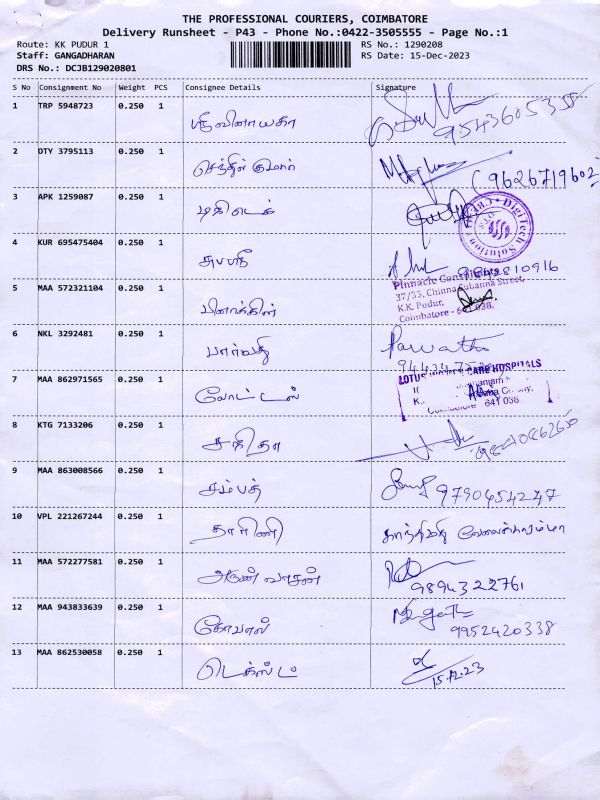 THE PROFESSIONAL COURIERS, COIMBATORE
Delivery Runsheet - P43 - Phone No.:0422-3505555 - Page No.:1
Route: KK PUDUR 1 RS No.: 1290208
Staff: GANGADHARAN RS Date: 15-Dec-2023
DRS No.: DCJB129020801
S No Consignment No Weight PCS Consignee Details Signature
1 TRP 5948723 0.250 1 ஸ்ரீ விநாயகா
2 OTY 3795113 0.250 1 செந்தில் குமார் (9626719602)
3 APK 1259087 0.250 1 டிஜிடெக்
DigiTech Solution
4 KUR 695475404 0.250 1 சுபஸ்ரீ
Pinnacle
5 MAA 572321104 0.250 1 பினாக்கில் 37/33, Chinna Subanna Street,
K.K. Pudur,
Coimbatore - 641 038.
6 NKL 3292481 0.250 1 பார்வதி Parvatha
LOTUS CARE HOSPITALS
7 MAA 862971565 0.250 1 லோட்டஸ்
Coimbatore 641 038
8 KTG 7133206 0.250 1 சரிதா
9 MAA 863008566 0.250 1 சம்பத் 9790454247
10 VPL 221267244 0.250 1 தாரிணி காந்திமதி வேலைக்காரம்மா
11 MAA 572277581 0.250 1 அருண் வாசன் 9894322761
12 MAA 943833639 0.250 1 கோபால் 9952420338
13 MAA 862530058 0.250 1 டெக்ஸ்டம் 15.12.23